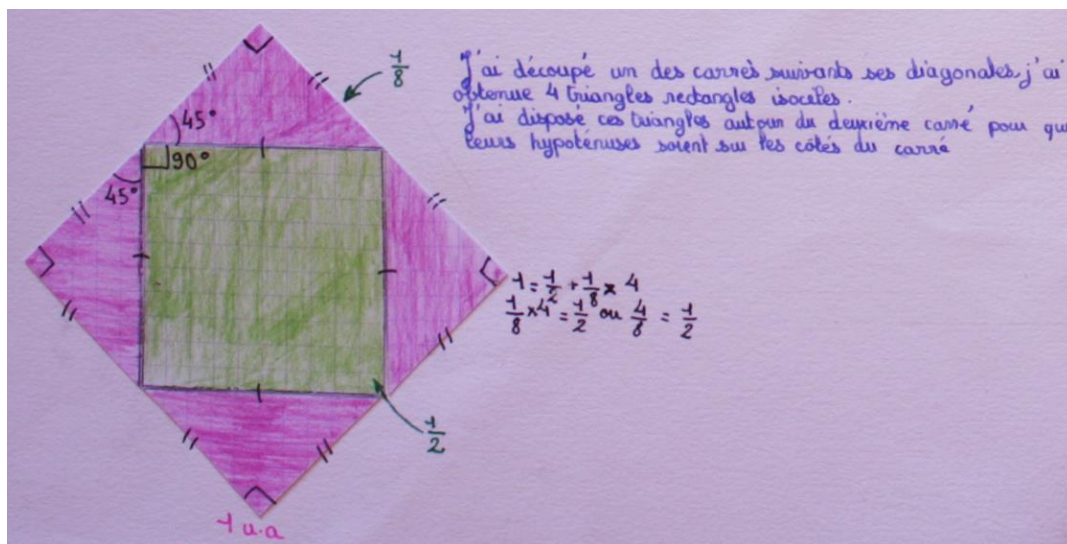 1/8
J'ai découpé un des carrés suivants ses diagonales, j'ai
obtenue 4 triangles rectangles isocèles.
J'ai disposé ces triangles autour du deuxième carré pour qu
leurs hypoténuses soient sur les côtés du carré
45°
90°
45°
1 = 1/2 + 1/8 × 4
1/8 × 4 = 1/2 ou 4/8 = 1/2
1/2
1 u.a